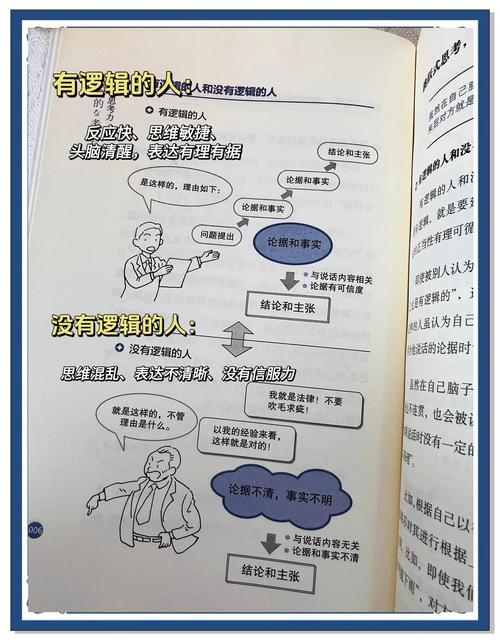 有逻辑的人:
的人和没有逻辑的人
有逻辑的人
反应快、思维敏捷、
头脑清醒，表达有理有据
是这样的，理由如下：
问题提出
论据和事实
论据和事实
结论和主张
论据和事实
与说话内容相关
论据有可信度
结论和主张
没有逻辑的人:
没有逻辑的人
思维混乱、表达不清晰、没有信服力
我就是法律！不要
吹毛求疵！
就是这样的，不管
理由是什么。
以我的经验来看，
这样就是对的！
论据不清，事实不明
与说话内容无关
论据和事实不清
结论和主张
006
虽然在自己脑
来后对方就是
有逻辑的人和没
有逻辑的人和
有逻辑，就是要
正当性有理可循
即使被别人认为
是有逻辑的”，这
的人虽认为自己
说话的论据时
虽然在自己脑子
不连贯，也会被
说话时没有一定的
比如，根据自己以
时其进行根据
比如，即使我们
下雨”，对方